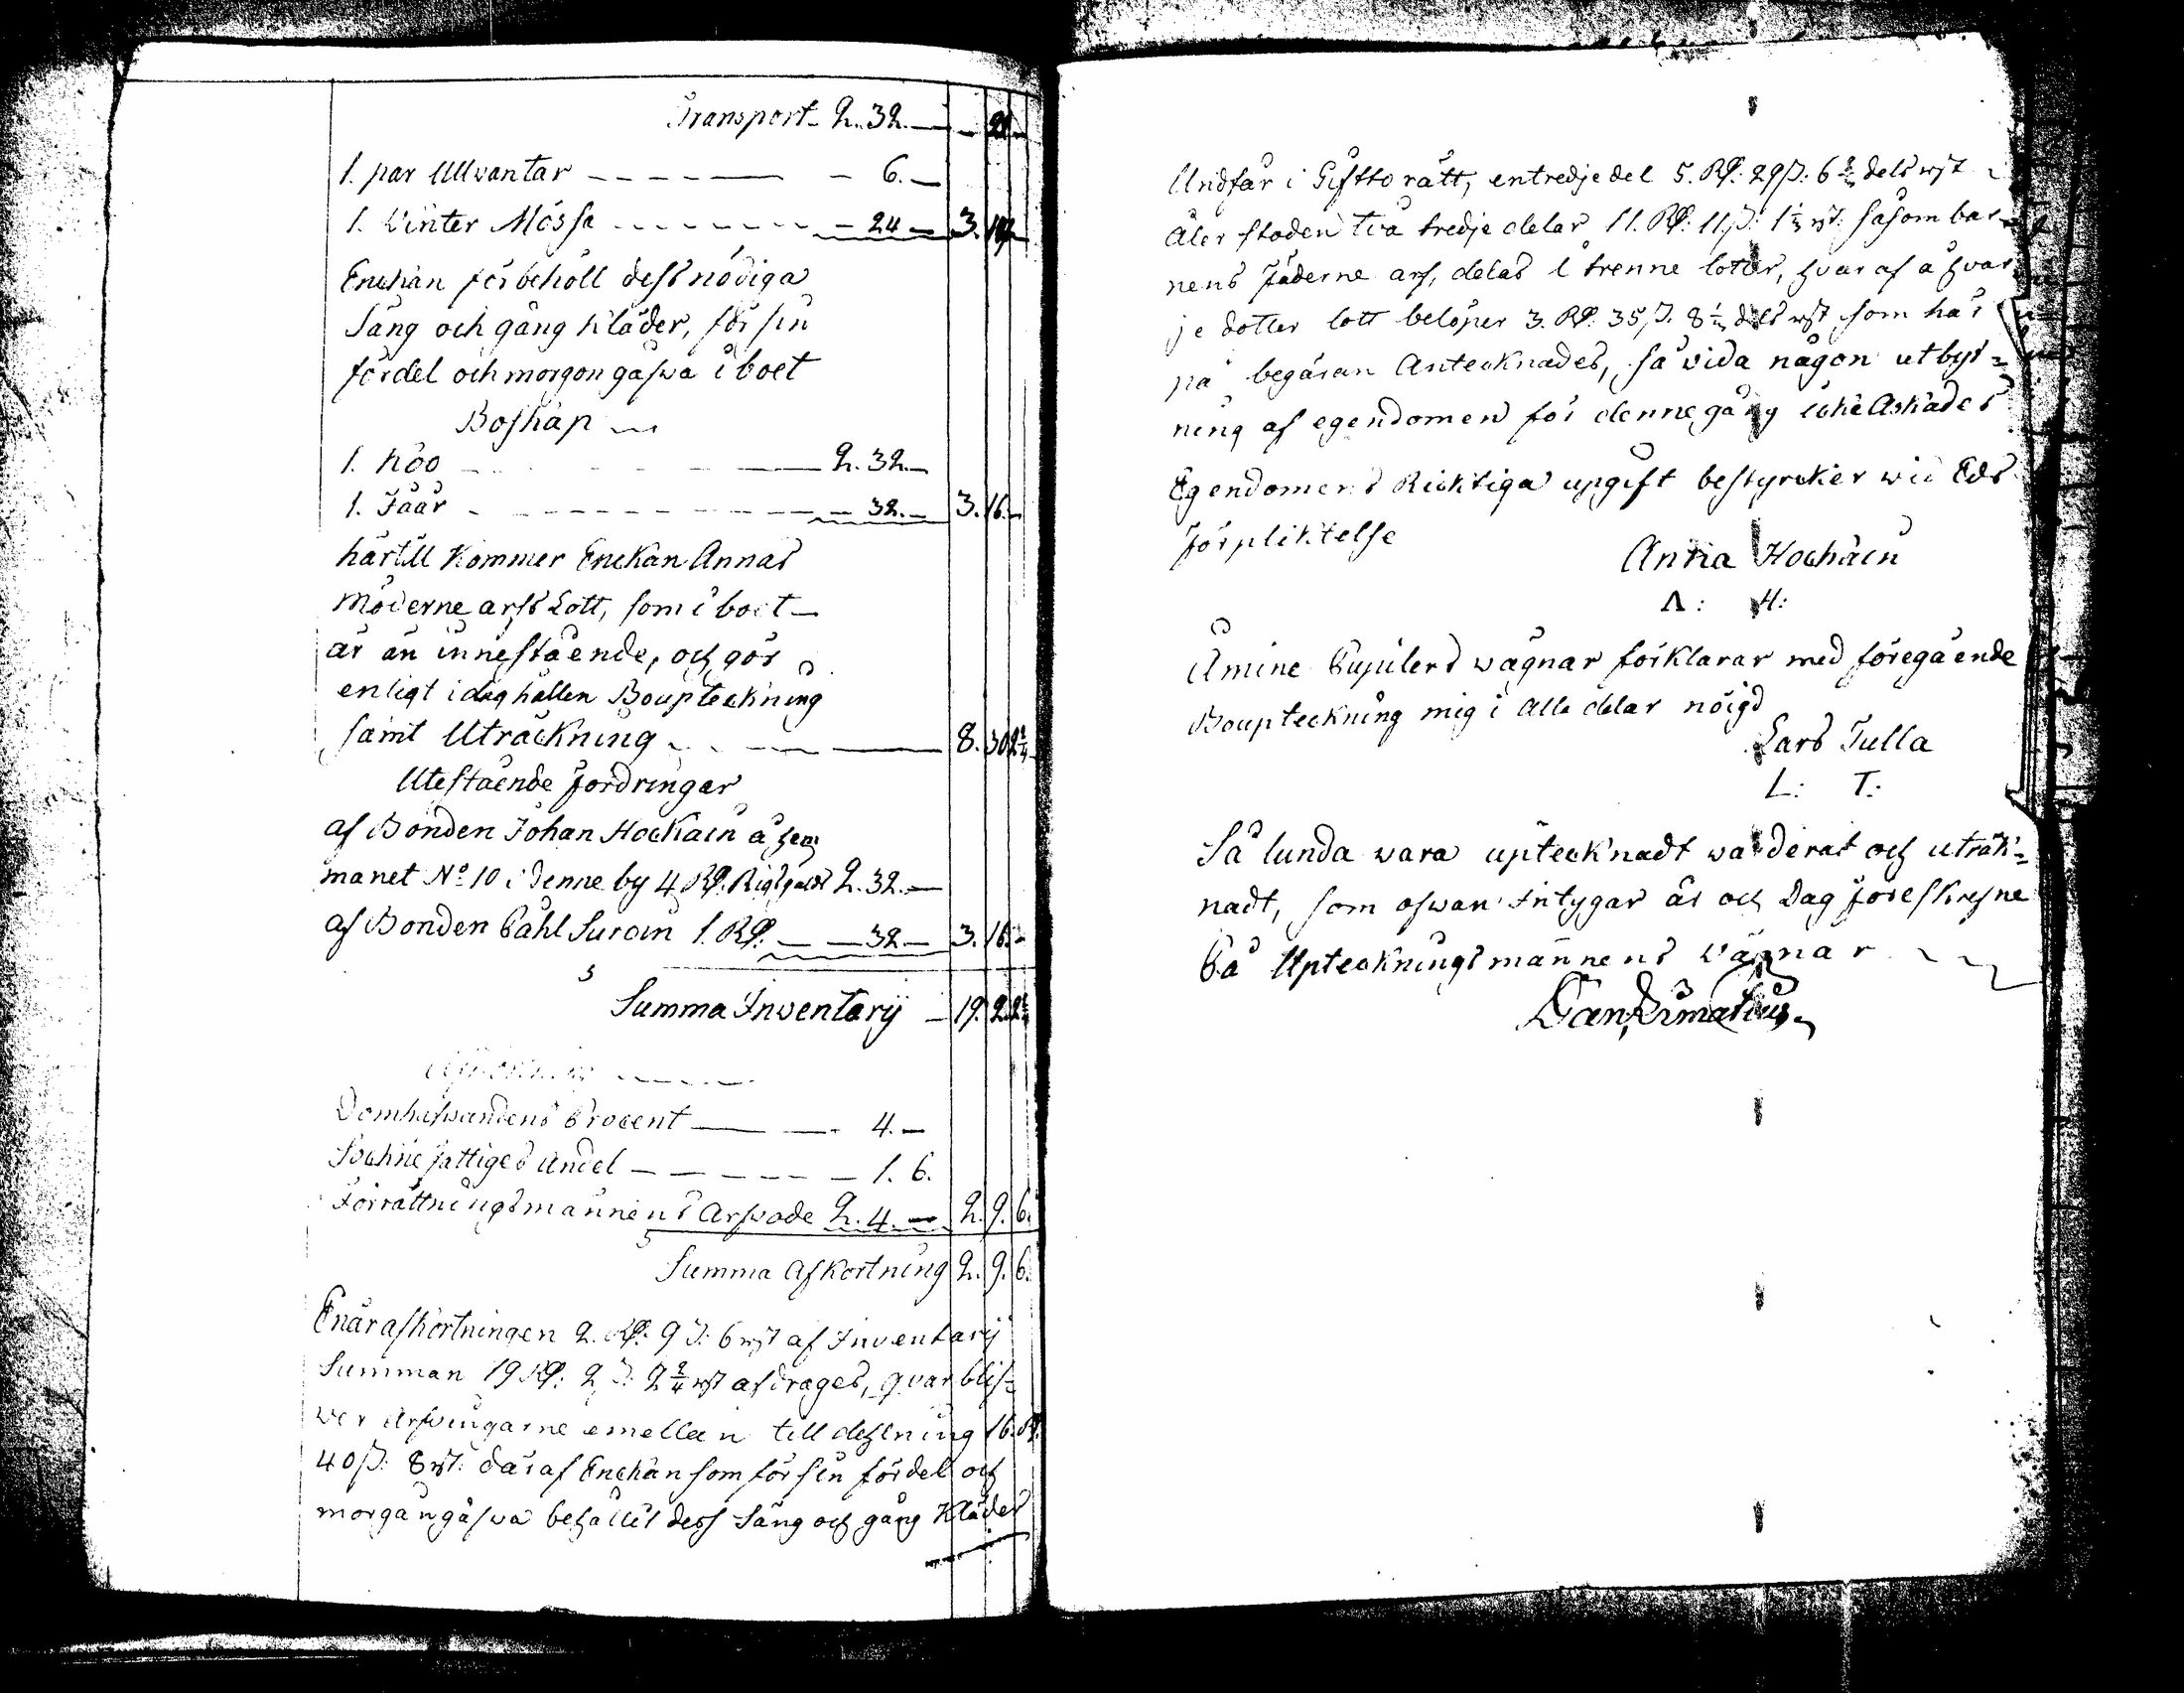 Transport - 2. 32. —
1. par Ullvantar — 6. —
1. Vinter Mössa — 24 — 3. 14
Enckan förbehöll dess nödiga
Säng och gång kläder, för sin
fördel och morgongåfva i boet
Boskap
1. Koo — 2. 32. —
1. Fåår — 32. — 3. 16. —
härtill kommer Enckan Annas
Möderne arfs Lott, som i boet —
är än innestående, och gör
enligt idag hållen Boupteckning
samt Uträckning — 8. 30. 2 2/4
Utestående fordringar
af Bonden Johan Hockain å hem
manet No 10 i denne by 4 Rd. Rigsgälds 2. 32. —
af Bonden Påhl Suroin 1. Rd. — 32 — 3. 16. —
Summa Inventarij — 19. 2. 2 2/4
Domhafvandens Procent — 4. —
Sockne fattiges andel — 1. 6.
Förrättningsmännens Arfvode 2. 4. — 2. 9. 6.
Summa Afkortning 2. 9. 6.
Enär afkortningen 2. Rd: 9 s: 6 rst af Inventarij
Summan 19 Rd: 2 s: 2 2/4 rst afdrages, qvar blif=
ver Arfvingarne emellan till dehlning 16. Rd.
40 s: 8 rst: däraf Enckan som för sin fördel och
morgångåfva behållit dess Säng och gång Kläder
Undfår i Giftto rätt, entredjedel 5. Rd: 29 s: 6 2/3 dels rst
Åter stoden två tredje delar 11. Rd: 11. s: 1 1/3 rst: såsom bar=
nens Fäderne arf, delas i trenne lotter, hvar af å hvar
je dotter lott belöper 3. Rd: 35 s. 8 dels rst som här
på begäran Antecknades, så vida någon utbyt=
ning af egendomen för denne gång icke Äskades
Egendomens Ricktiga upgift bestyrcker wid Eds
förpliktelse
Anna Hockain
A: H:
Å mine Pupilers vägnar förklarar med föregående
Boupteckning mig i alla delar nöigd
Lars Tulla
L: T:
Så lunda vara uptecknadt värderat och uträk=
nadt, som ofvan Intygar år och Dag föreskrefne
På Upteckningsmännens Vägnar